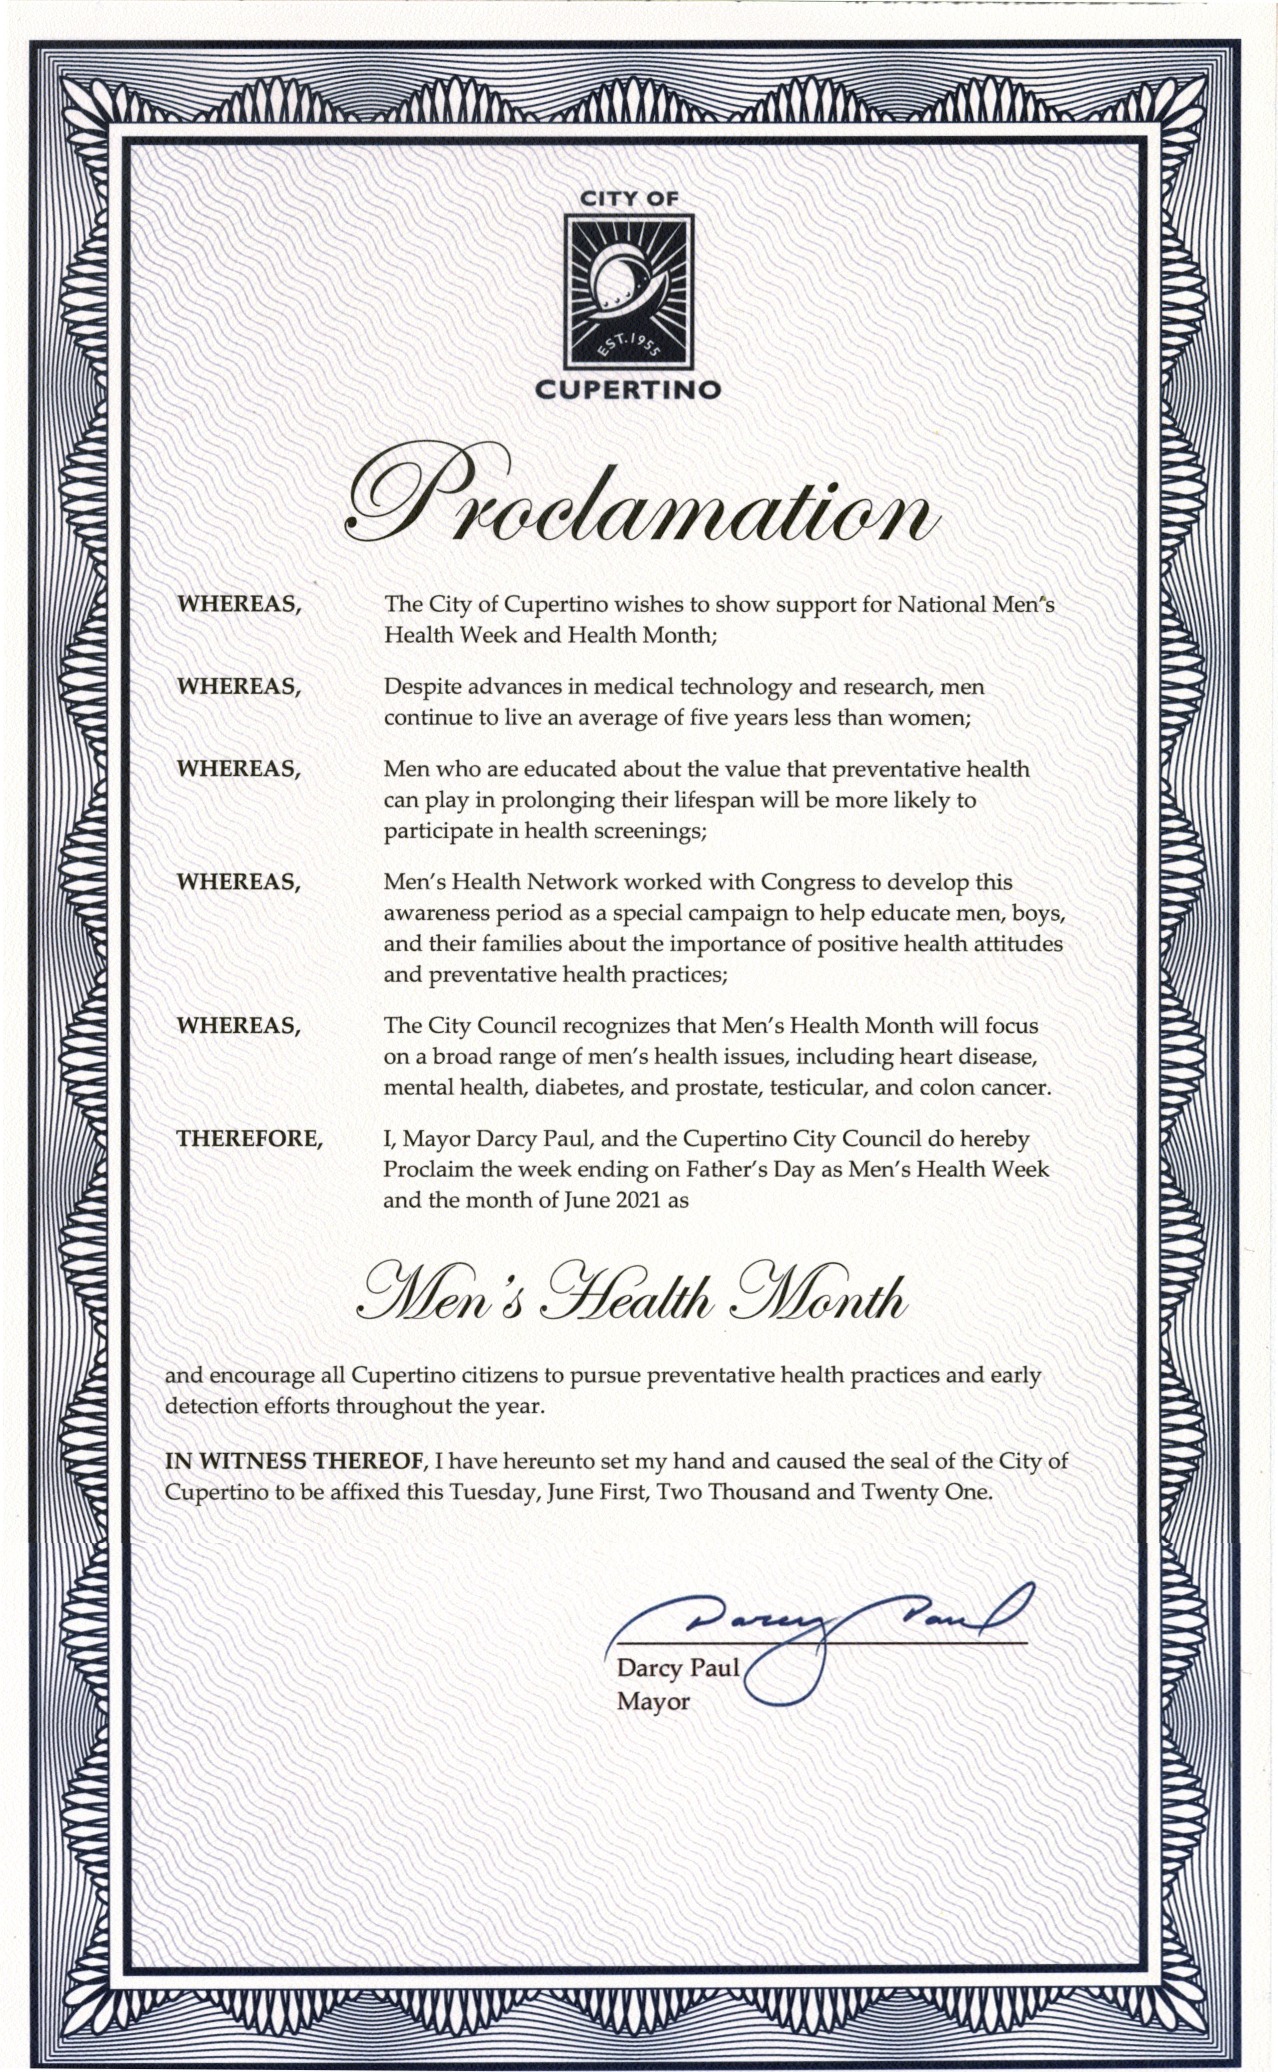 CITY OF
EST. 1955
CUPERTINO
Proclamation
WHEREAS, The City of Cupertino wishes to show support for National Men's
Health Week and Health Month;
WHEREAS, Despite advances in medical technology and research, men
continue to live an average of five years less than women;
WHEREAS, Men who are educated about the value that preventative health
can play in prolonging their lifespan will be more likely to
participate in health screenings;
WHEREAS, Men's Health Network worked with Congress to develop this
awareness period as a special campaign to help educate men, boys,
and their families about the importance of positive health attitudes
and preventative health practices;
WHEREAS, The City Council recognizes that Men's Health Month will focus
on a broad range of men's health issues, including heart disease,
mental health, diabetes, and prostate, testicular, and colon cancer.
THEREFORE, I, Mayor Darcy Paul, and the Cupertino City Council do hereby
Proclaim the week ending on Father's Day as Men's Health Week
and the month of June 2021 as
Men's Health Month
and encourage all Cupertino citizens to pursue preventative health practices and early
detection efforts throughout the year.
IN WITNESS THEREOF, I have hereunto set my hand and caused the seal of the City of
Cupertino to be affixed this Tuesday, June First, Two Thousand and Twenty One.
Darcy Paul
Darcy Paul
Mayor